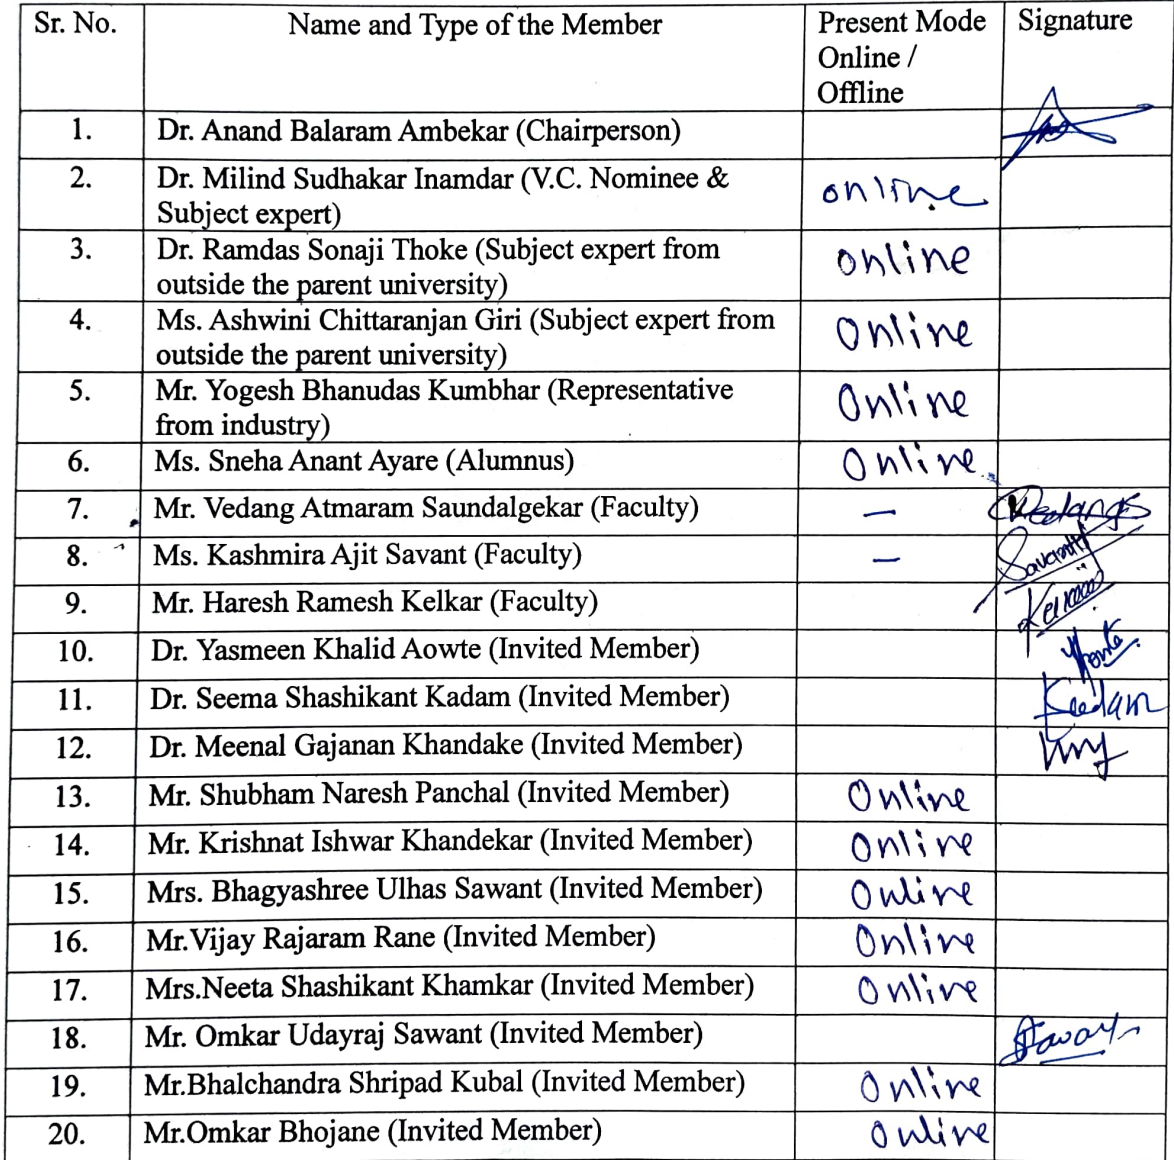 Sr. No. Name and Type of the Member Present Mode Signature
Online /
Offline
1. Dr. Anand Balaram Ambekar (Chairperson)
2. Dr. Milind Sudhakar Inamdar (V.C. Nominee & online
Subject expert)
3. Dr. Ramdas Sonaji Thoke (Subject expert from online
outside the parent university)
4. Ms. Ashwini Chittaranjan Giri (Subject expert from Online
outside the parent university)
5. Mr. Yogesh Bhanudas Kumbhar (Representative Online
from industry)
6. Ms. Sneha Anant Ayare (Alumnus) Online
7. Mr. Vedang Atmaram Saundalgekar (Faculty) —
8. Ms. Kashmira Ajit Savant (Faculty) —
9. Mr. Haresh Ramesh Kelkar (Faculty)
10. Dr. Yasmeen Khalid Aowte (Invited Member)
11. Dr. Seema Shashikant Kadam (Invited Member)
12. Dr. Meenal Gajanan Khandake (Invited Member)
13. Mr. Shubham Naresh Panchal (Invited Member) Online
14. Mr. Krishnat Ishwar Khandekar (Invited Member) Online
15. Mrs. Bhagyashree Ulhas Sawant (Invited Member) Online
16. Mr.Vijay Rajaram Rane (Invited Member) Online
17. Mrs.Neeta Shashikant Khamkar (Invited Member) Online
18. Mr. Omkar Udayraj Sawant (Invited Member)
19. Mr.Bhalchandra Shripad Kubal (Invited Member) Online
20. Mr.Omkar Bhojane (Invited Member) Online